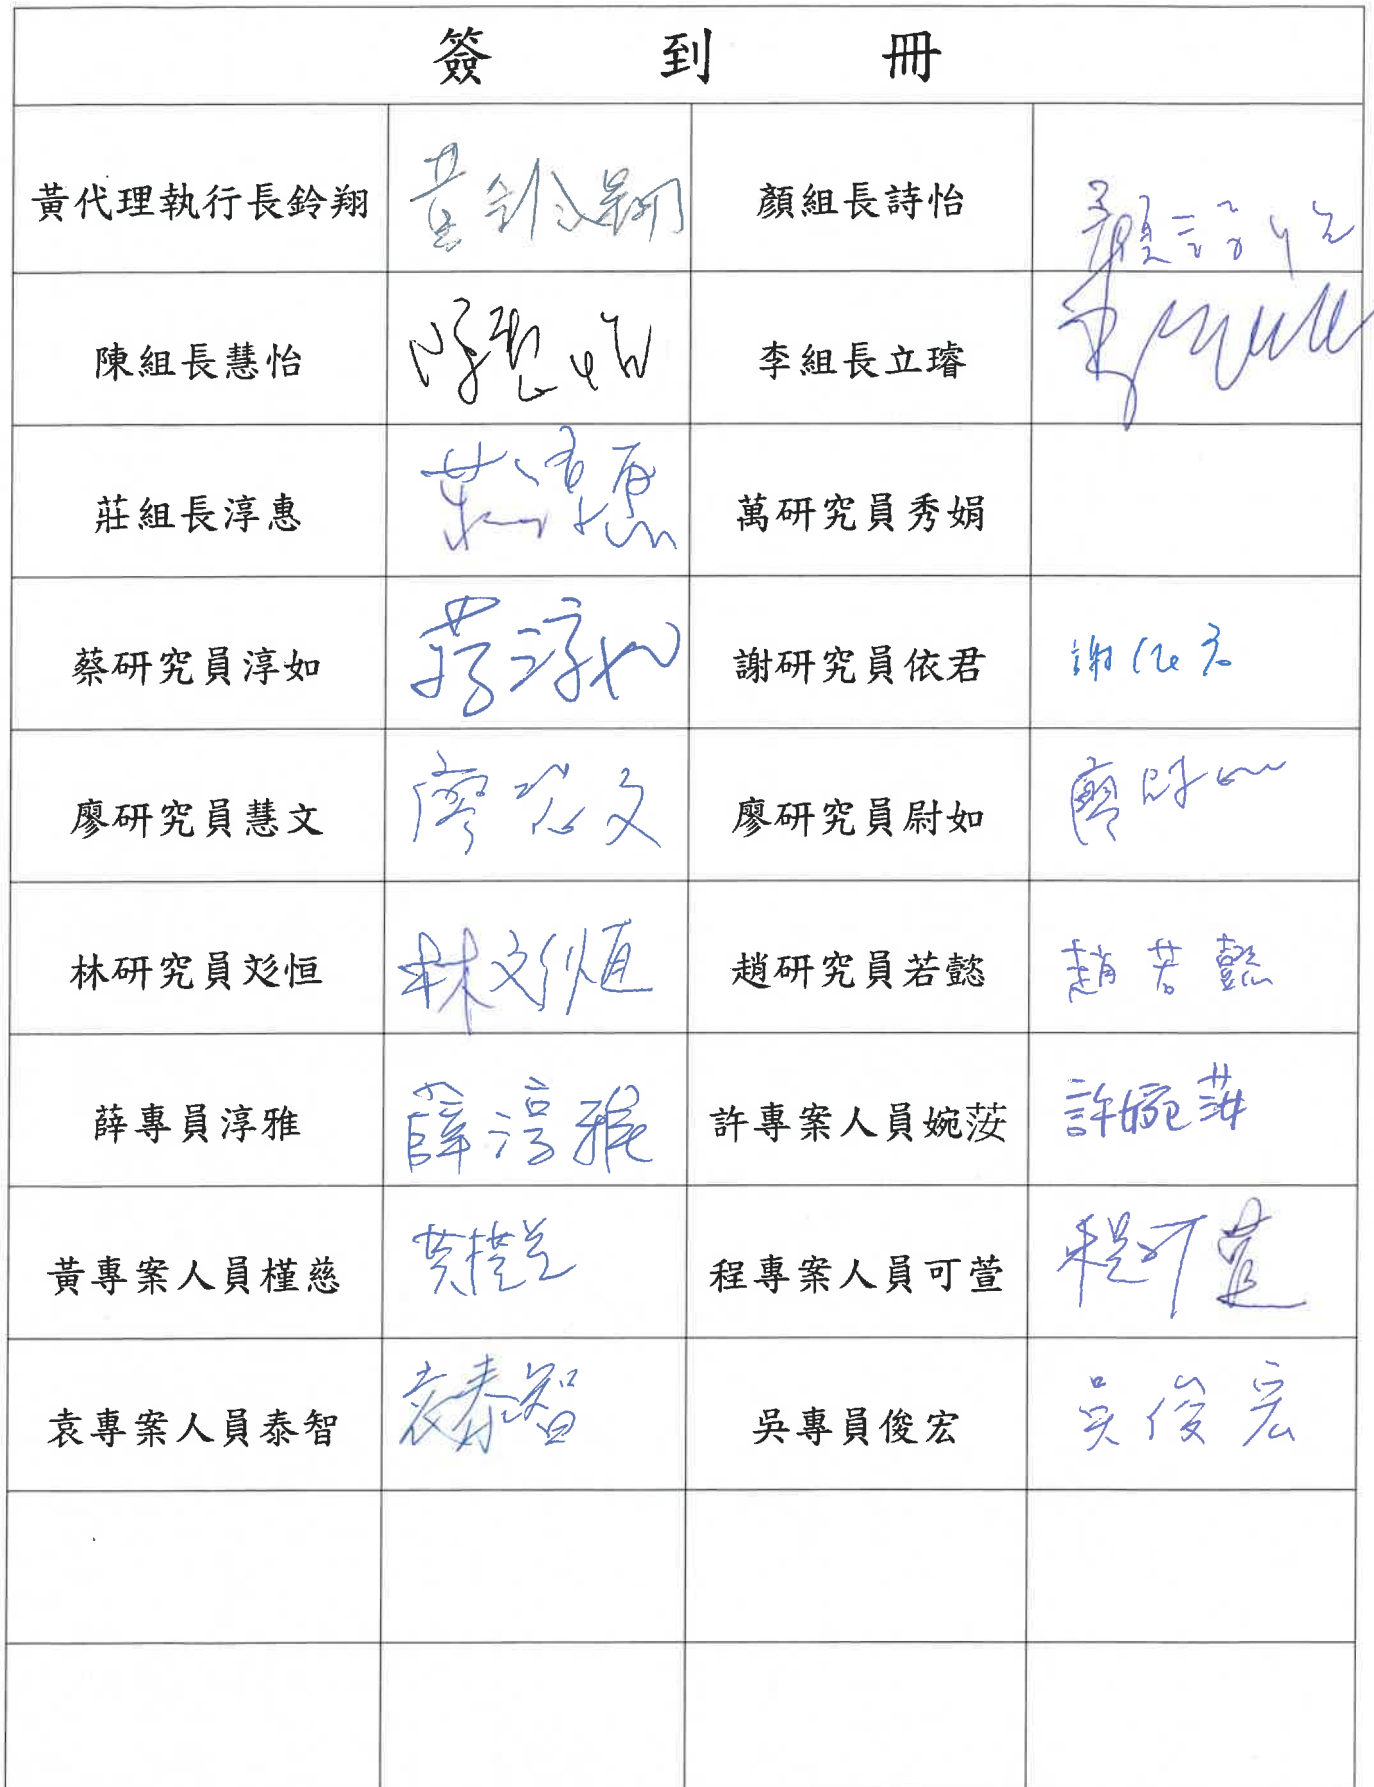 簽到冊
黃代理執行長鈴翔 黃鈴翔 顏組長詩怡 顏詩怡
陳組長慧怡 陳慧怡 李組長立璿
莊組長淳惠 莊淳惠 萬研究員秀娟
蔡研究員淳如 蔡淳如 謝研究員依君 謝依君
廖研究員慧文 廖慧文 廖研究員尉如 廖尉如
林研究員彣恒 林彣恒 趙研究員若懿 趙若懿
薛專員淳雅 薛淳雅 許專案人員婉洝 許婉洝
黃專案人員槿慈 黃槿慈 程專案人員可萱 程可萱
袁專案人員泰智 袁泰智 吳專員俊宏 吳俊宏